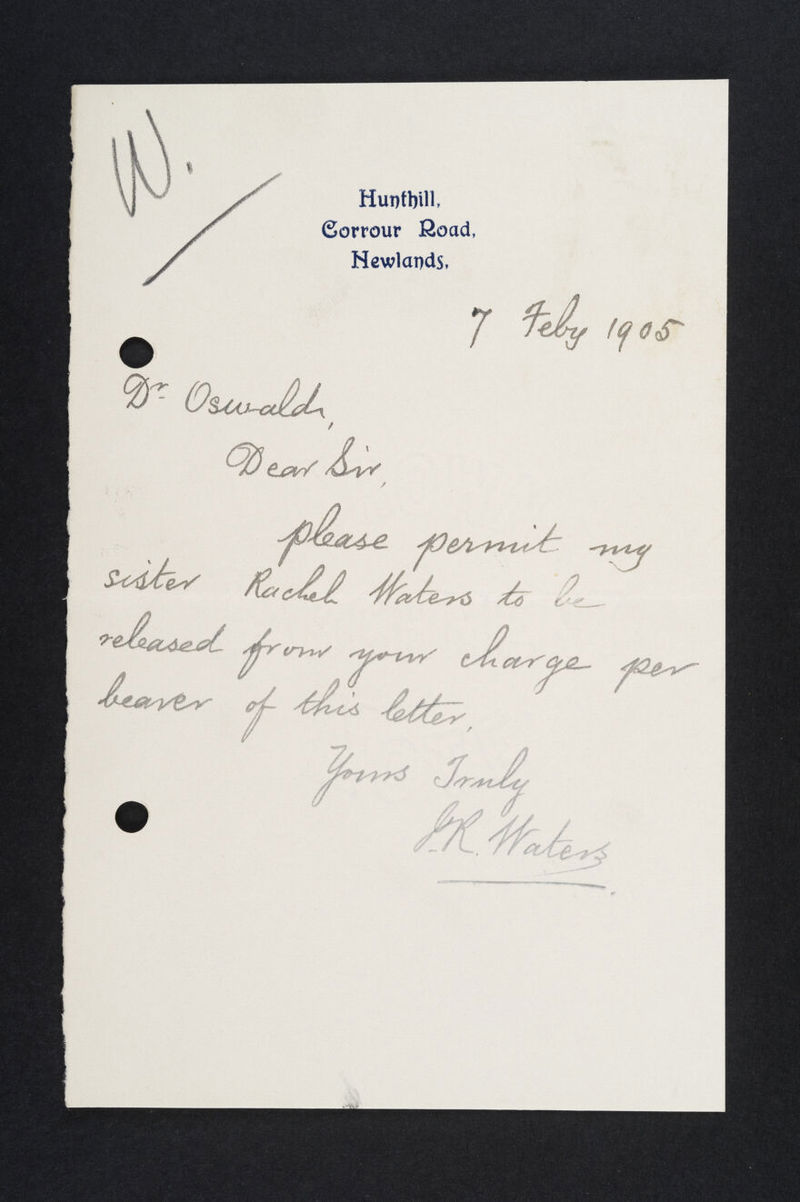 W.
Hunthill,
Corrour Road,
Newlands.
7 Feby 1905
Dr. Oswald,
Dear Sir,
please permit my
sister Rachel Waters to be
released from your charge per
bearer of this letter.
Yours Truly
J.R. Waters